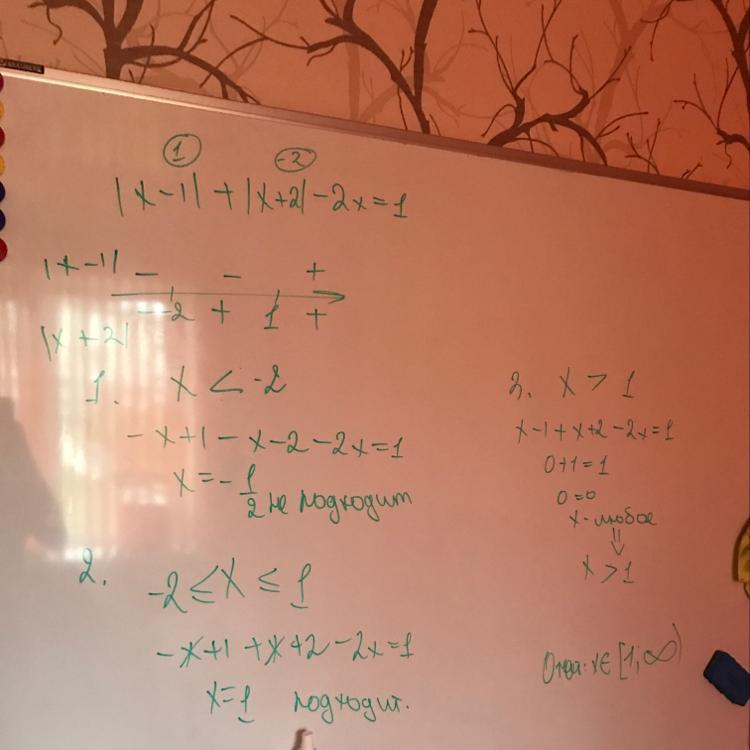 ① -2
|x-1| + |x+2| - 2x = 1
|x-1| - - +
-2 + 1 +
|x+2|
1. x < -2
-x+1-x-2-2x=1
x = -1/2 не подходит
2. -2 ≤ x ≤ 1
-x+1+x+2-2x=1
x=1 подходит.
3. x > 1
x-1+x+2-2x=1
0+1=1
0=0
x-любое
⇓
x>1
Ответ: x∈[1;∞)